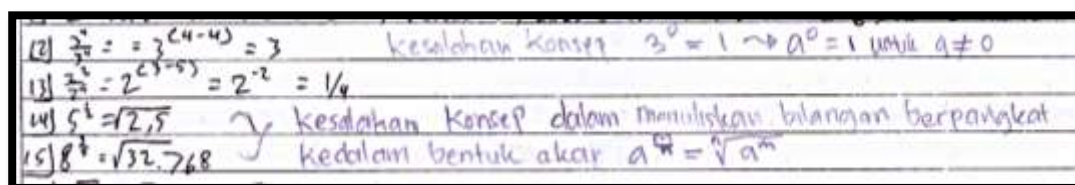 12] 3⁴/3⁴ = = 3^(4-4) = 3 kesalahan konsep 3⁰ = 1 ~> a⁰ = 1 untuk a ≠ 0
13] = 2^(3-5) = 2^-2 = 1/4
14] = √2,5 kesalahan konsep dalam menuliskan bilangan berpangkat
15] = √32.768 kedalam bentuk akar a^(m/n) = ⁿ√aᵐ